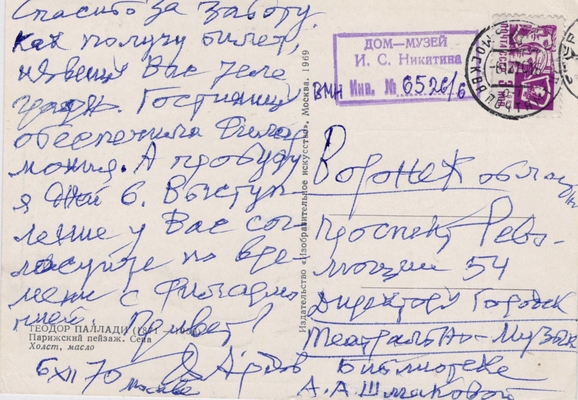 Спасибо за заботу.
Как получу билет,
извещу Вас теле
графн. Гостиницу
обеспечила Филар
мония. А пробуду
я дней 6. Выступ
ление у Вас сог
ласуйте по вре
мени с Филармо
нией. Привет!
Ардов
6 XII 70 Москва
ТЕОДОР ПАЛЛАДИ
Парижский пейзаж. Сена
Холст, масло
Издательство «Изобразительное искусство». Москва. 1969
ДОМ—МУЗЕЙ
И. С. Никитина
Инв. № 6526/6
ВМН
МОСКВА
Воронеж област
проспект Рево
люции 54
Директору Городск
Театрально-Музык
Библиотеке
А. А. Шмаковой